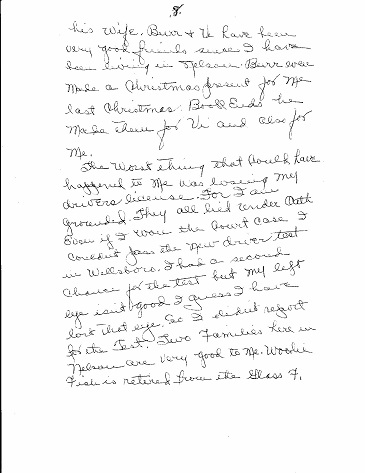 8.
his wife. Burr & Vi have been
very good friends since I have
been living in Nelson. Burr even
Made a Christmas present for Me
last Christmas. Book Ends he
Made them for Vi and also for
Me.
The Worst thing that Could have
happened to Me was loosing my
drivers license. For I am
grounded. They all lied under Oath
Even if I won the Court Case I
Couldnt pass the new driver test
in Wellsboro. I had a second
Chance for the test but my left
eye isn't good I guess I have
lost that eye. So I didnt report
for the Test. Two Families here in
Nelson are very good to Me. Woodie
Fish is retired from the Glass F.